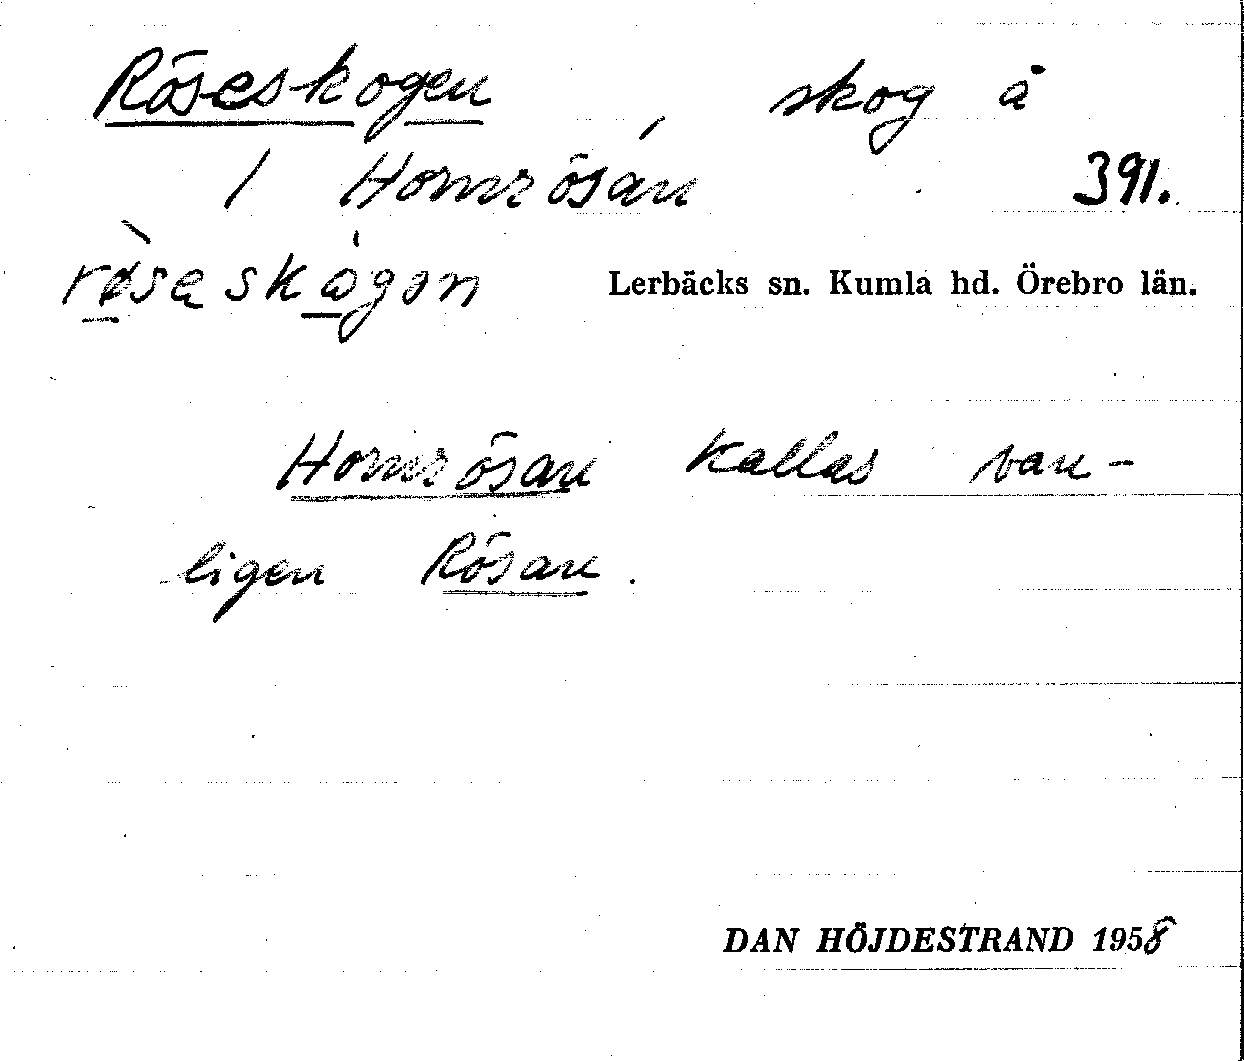 Röseskogen, skog å
1 Hornrösan 391.
røsaskågen Lerbäcks sn. Kumla hd. Örebro län.
Hornrösan kallas van-
ligen Rösan.
DAN HÖJDESTRAND 1958